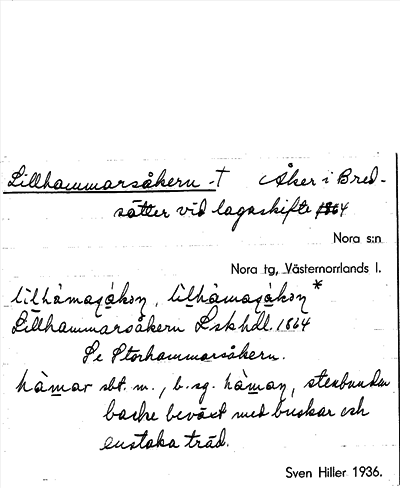 Lillhammarsåkern -† Åker i Bred-
sätter vid lagaskifte 1864
Nora s:n
Nora tg, Västernorrlands l.
lìlhàmaṣåkən, lìlhàmaṣåkən*
Lillhammarsåkern Lskhdl. 1864
Se Storhammarsåkern.
hàmar sbt. m., b. sg. hàman, stenbunden
backe beväxt med buskar och
enstaka träd.
Sven Hiller 1936.